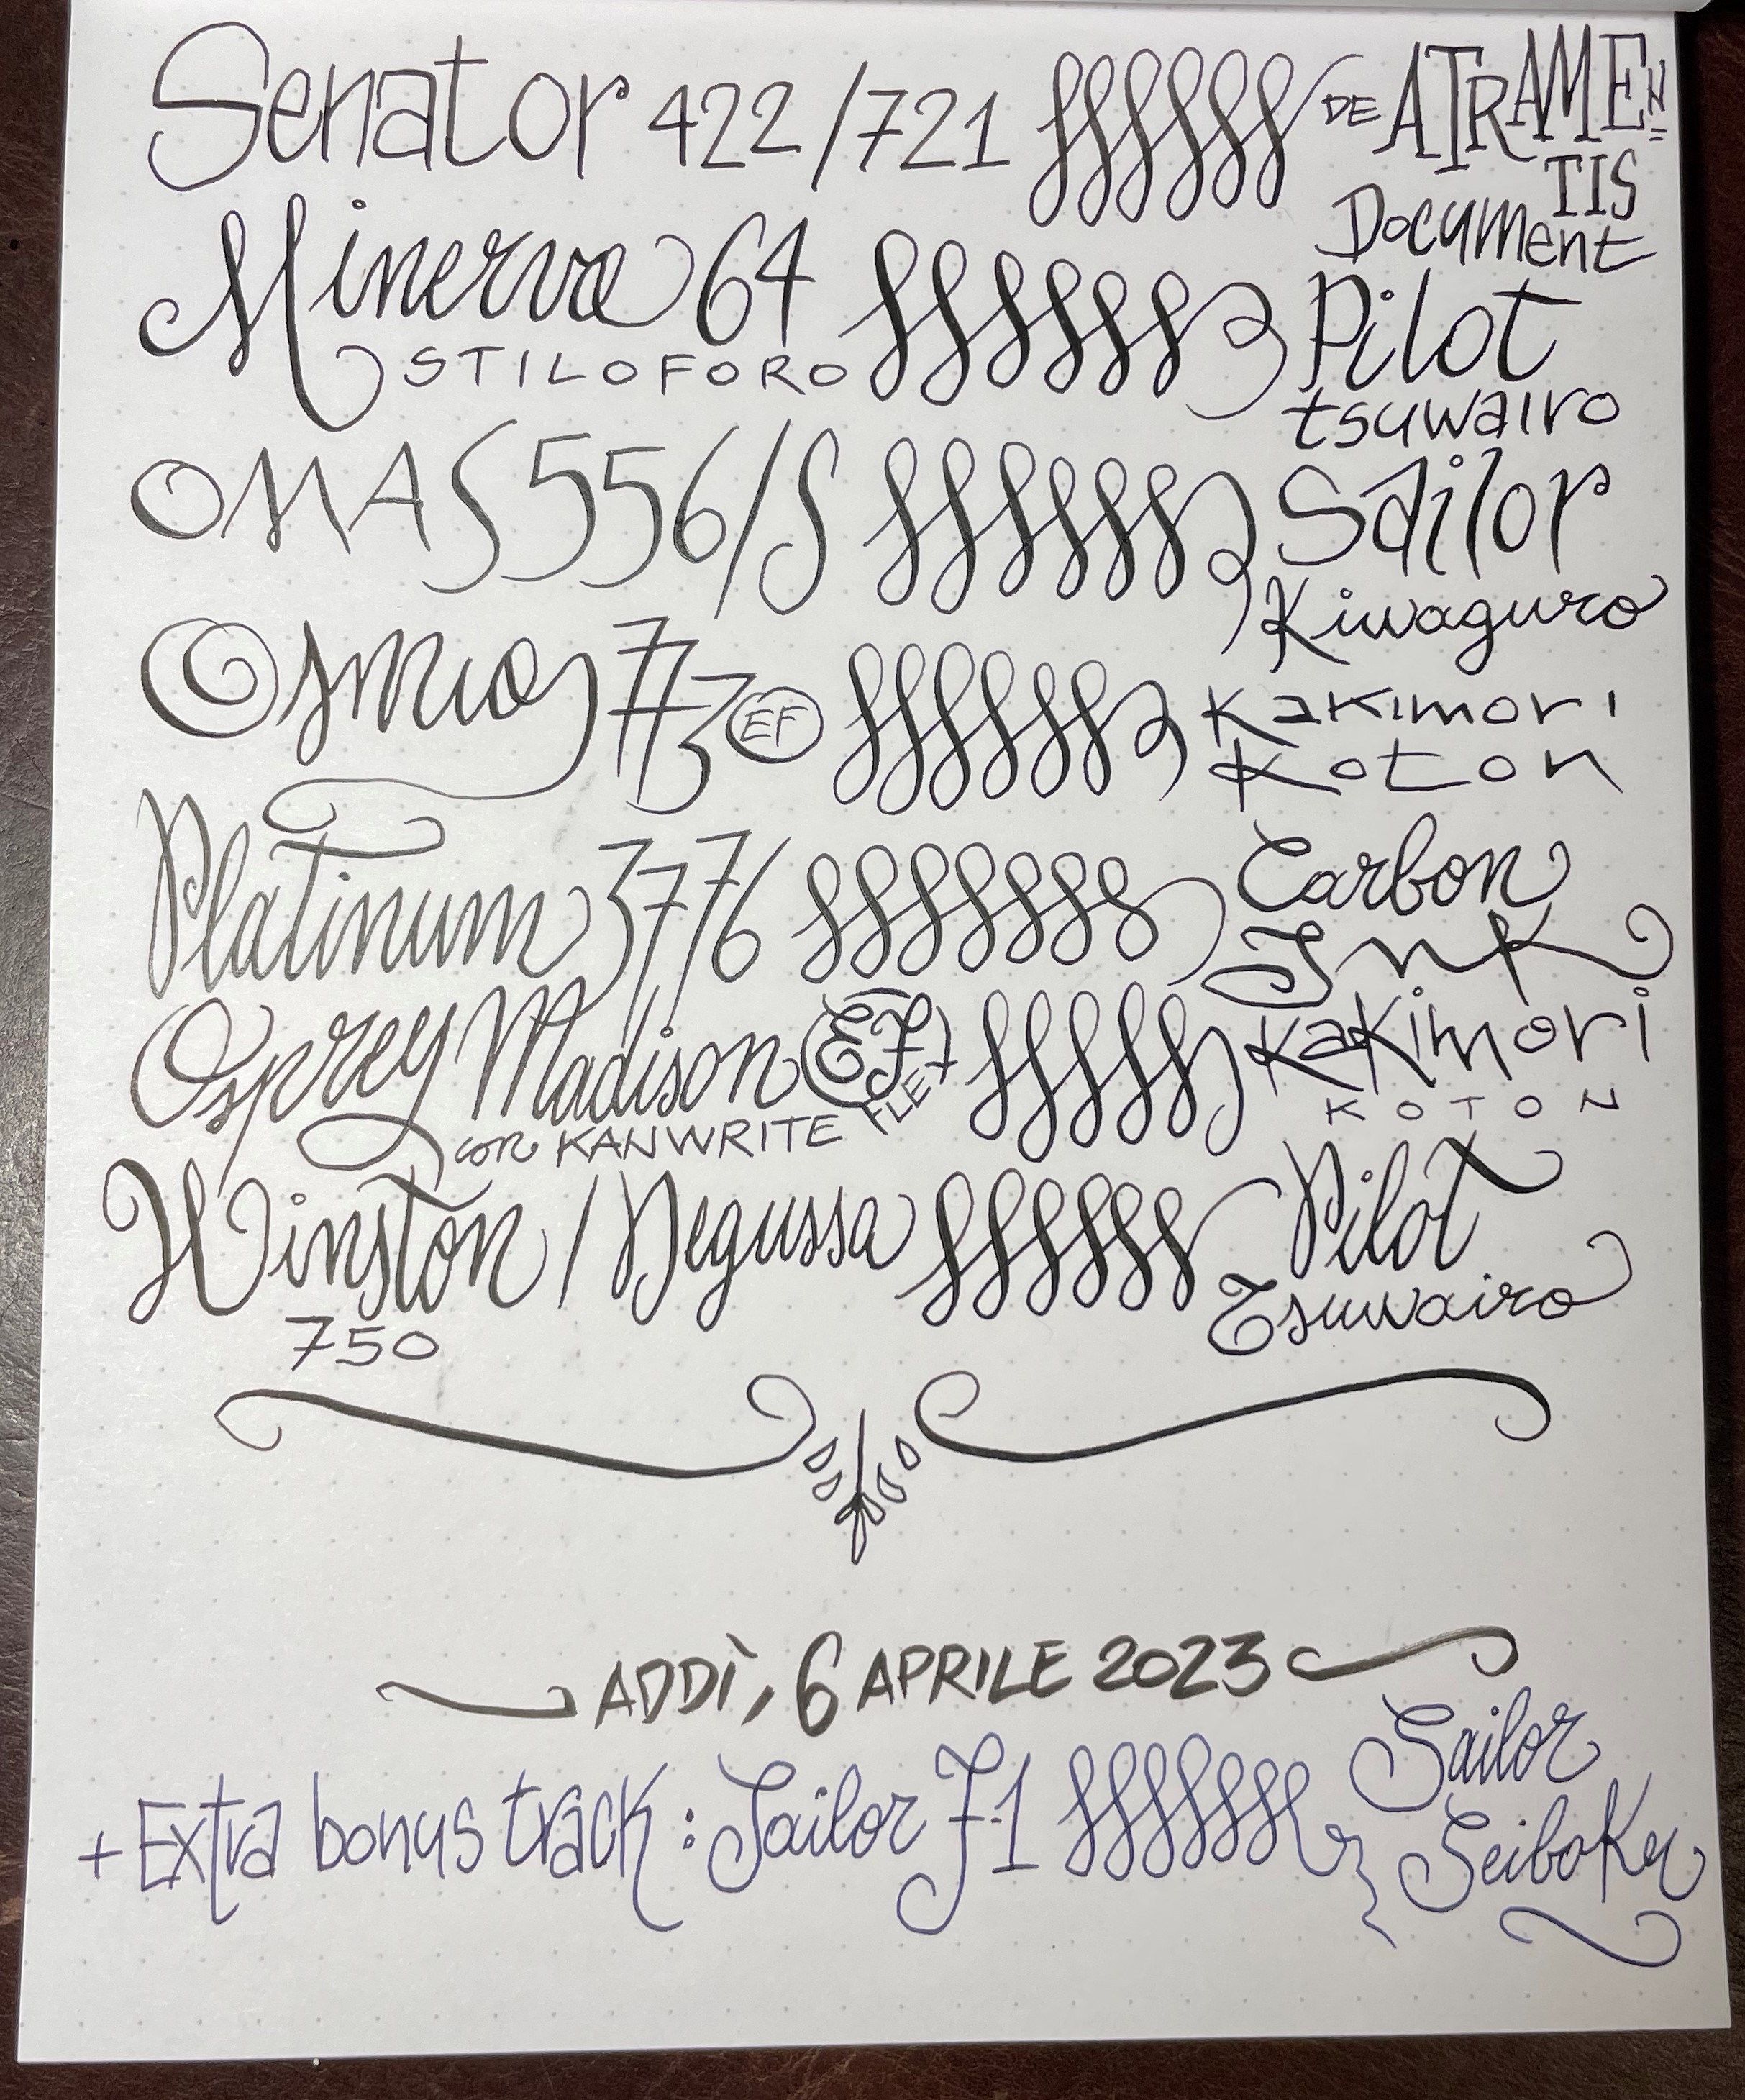 Senator 422/721 DE ATRAMEN=
TIS
Document
Minerva 64 Pilot
STILOFORO tsuwairo
OMAS 556/S Sailor
Kiwaguro
Osmia 773 EF Kakimori
Koton
Platinum 3776 Carbon
Ink
Osprey Madison EF Kakimori
con KANWRITE FLEX KOTON
Winston / Degussa Pilot
750 Tsuwairo
ADDÌ, 6 APRILE 2023
+ Extra bonus track: Sailor F-1 Sailor
Seiboku